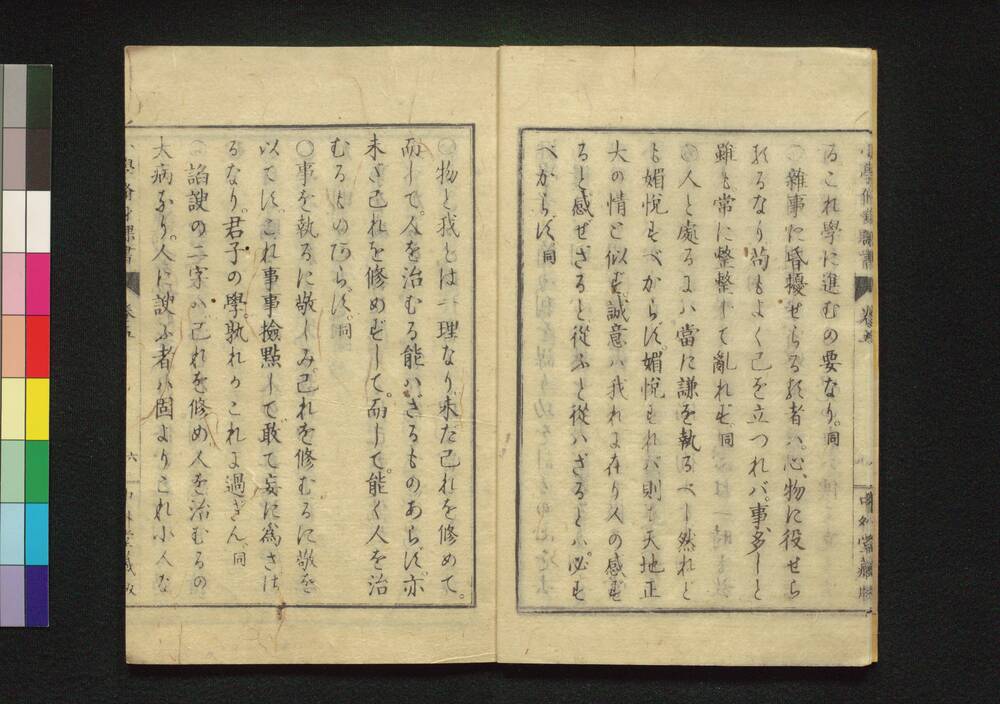 るこれ學に進むの要なり。同
○雜事に昏擾せらるる者ハ、心、物に役せら
るるなり苟もよく己を立つれバ、事、多しと
雖も常に整整して亂れず同
○人と處るにハ當に謙を執るべし然れど
も媚悦すべからず、媚悦すれバ則も天地正
大の情と似ず、誠意ハ我れに在り人の感ず
ると感ぜざると從ふと從ハざるとハ、必ず
べからず、同
○物と我とは一理なり、未だ己れを修めて。
而して、人を治むる能ハざるものあらず、亦
未だ己れを修めずして。而して、能く人を治
むるものあらず。同
○事を執るに敬しみ、己れを修むるに敬を
以てす、これ事事檢點して、敢て妄に爲さけ
るなり。君子の學。孰れかこれに過ぎん、同
○諂諛の二字ハ己れを修め人を治むるの
大病なり。人に諛ふ者ハ固よりこれ小人な
六